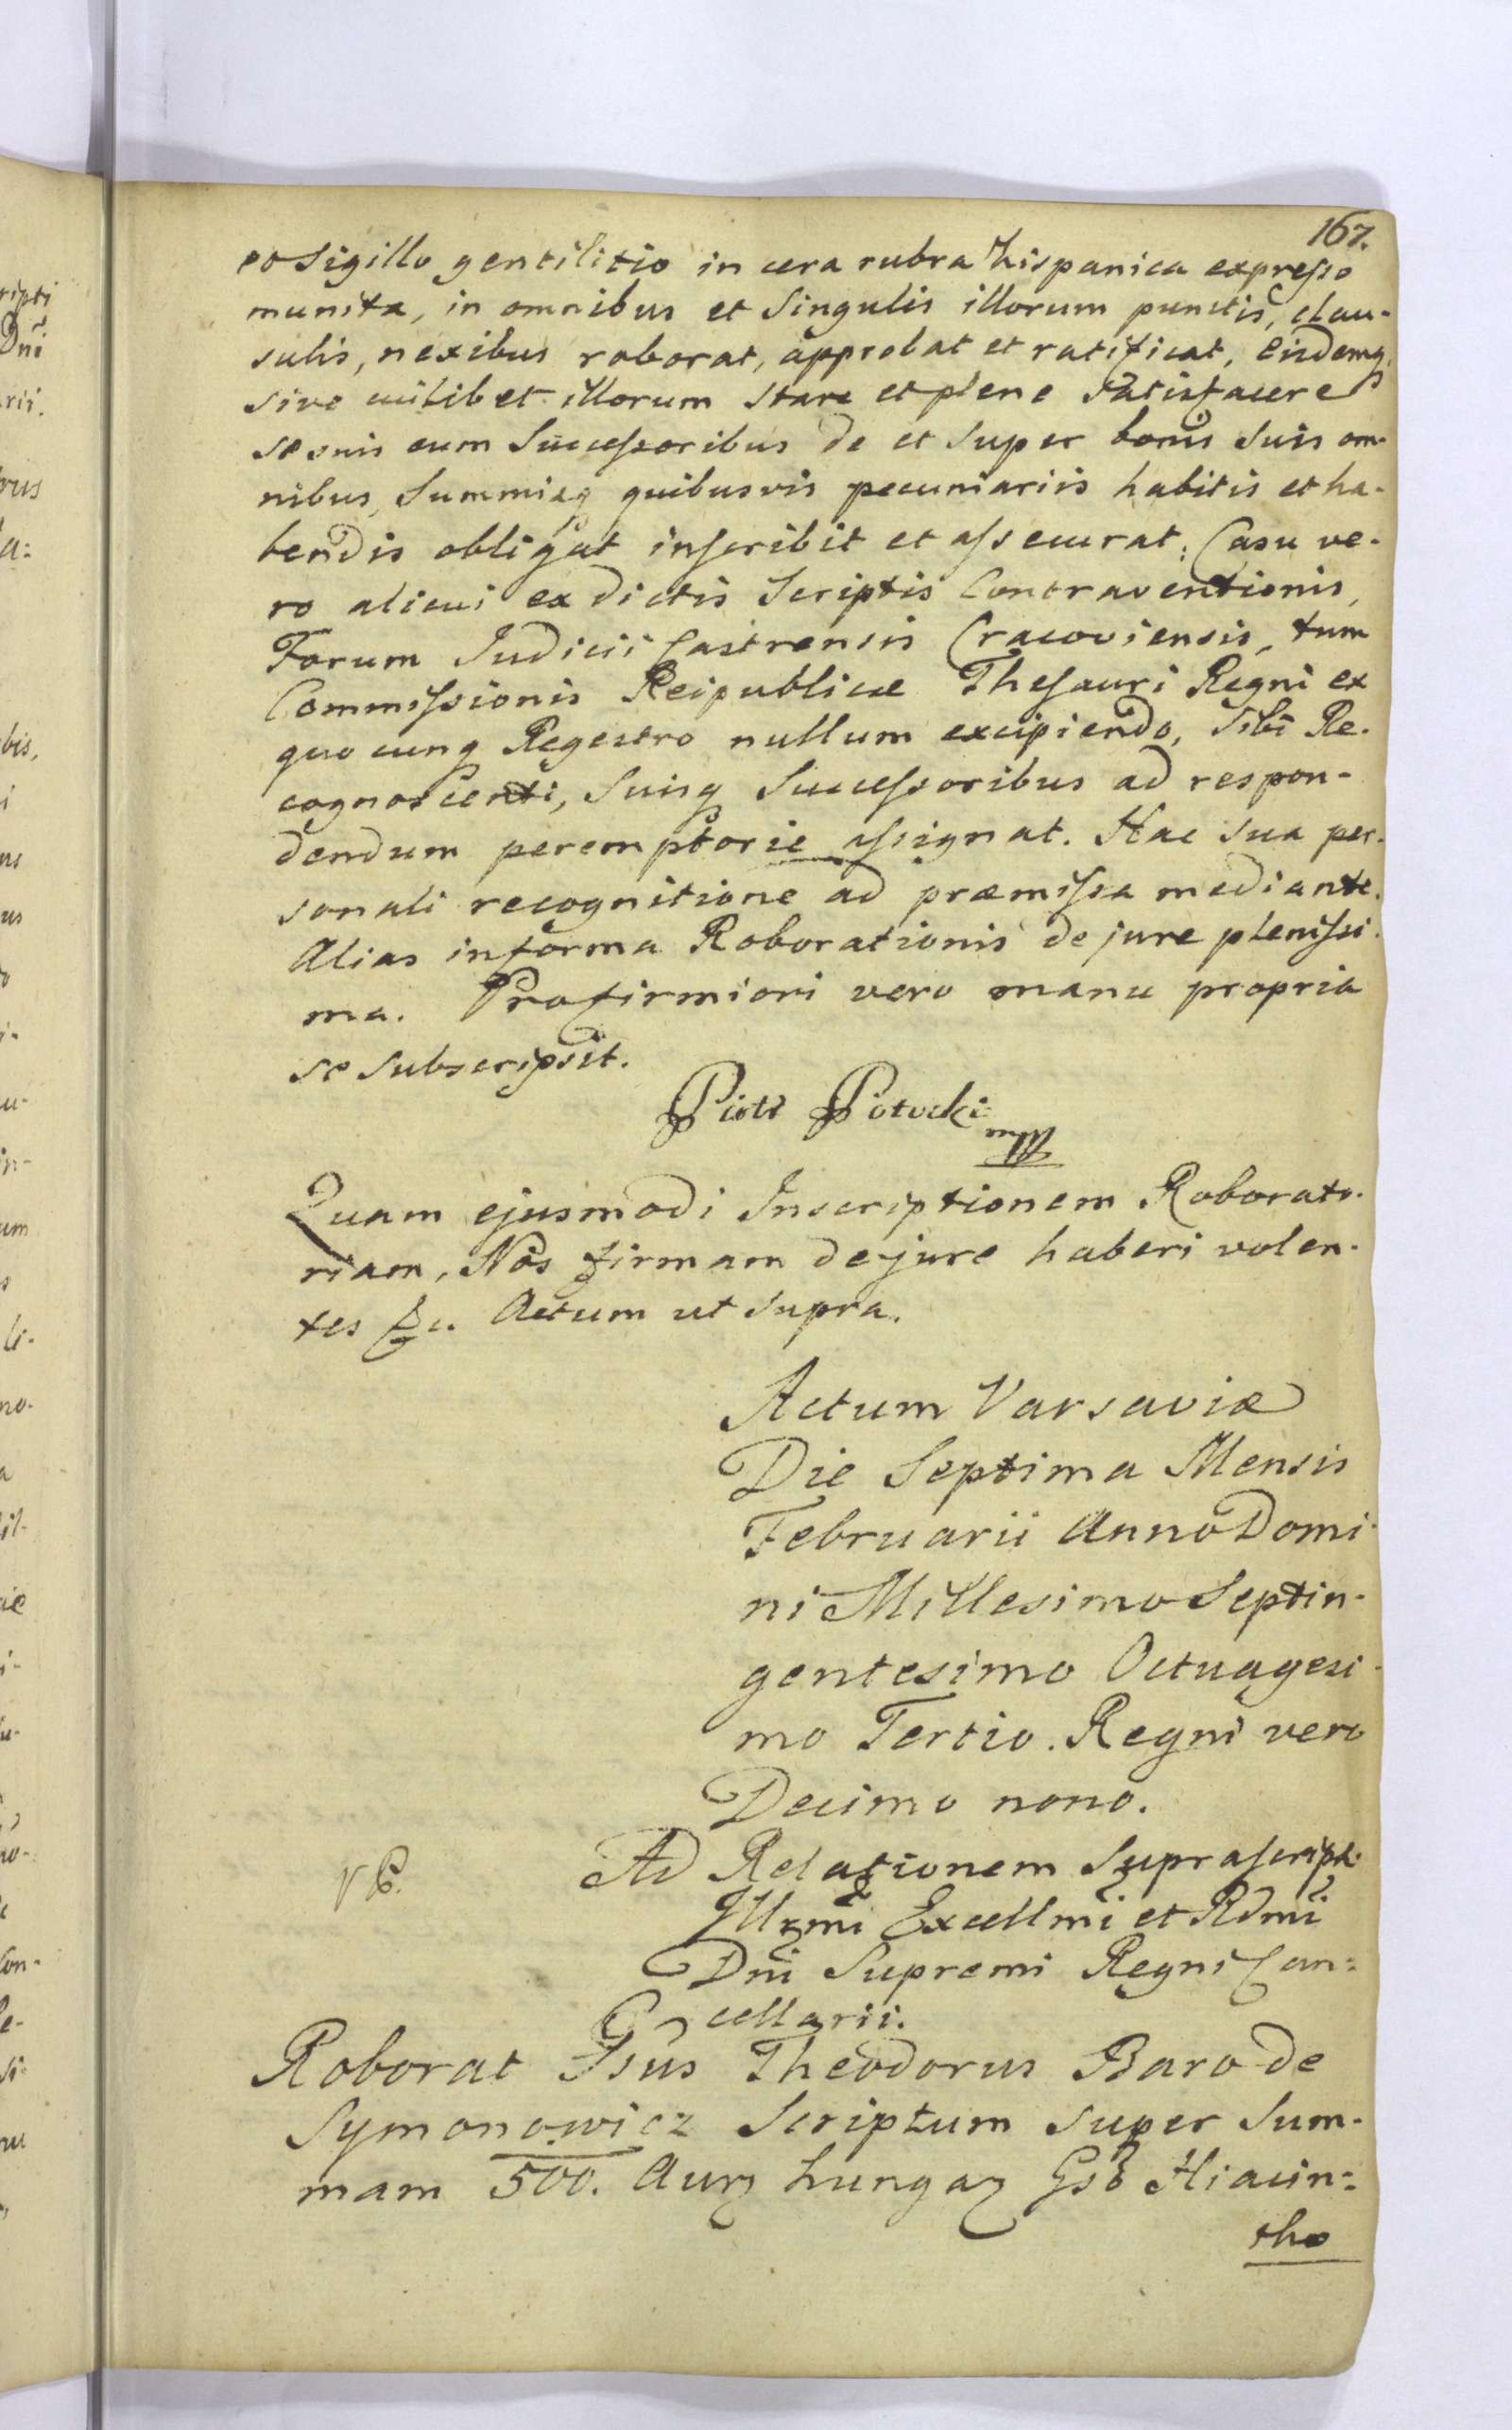 167.
eo Sigillo gentilitio in cera rubra hispanica expresso
munita, in omnibus et Singulis illorum punctis, clau-
sulis, nexibus roborat, approbat et ratificat, Eisdemq
sive cuilibet illorum stare et plene satisfacere
se suis cum Successoribus de et super bonis suis om-
nibus, Summisq quibusvis pecuniariis habitis et ha-
bendis obligat inscribit et assecurat; Casu ve-
ro alicui ex dictis Scriptis Contraventionis,
Forum Judicii Castrensis Cracoviensis, tum
Commissionis Reipublicæ Thesauri Regni ex
quocunq Regestro nullum excipiendo, sibi Re-
cognoscenti, Suisq Successoribus ad respon-
dendum peremptorie assignat. Hac sua per-
sonali recognitione ad præmissa mediante.
Alias in forma Roborationis de jure plenissi-
ma. Pro firmiori vero manu propria
se subscripsit.
Piotr Potocki mp
Quam ejusmodi Inscriptionem Roborato-
riam, Nos firmam de jure haberi volen-
tes &c. Actum ut supra.
Actum Varsaviæ
Die Septima Mensis
Februarii Anno Domi-
ni Millesimo Septin-
gentesimo Octuagesi-
mo Tertio. Regni vero
Decimo nono.
Ad Relationem Suprascript
Illmi Excellmi et Rdmi
Dni Supremi Regni Can-
cellarii.
Roborat Gsus Theodorus Baro de
Symonowicz Scriptum super Sum-
mam 500. Aur hungar Gso Hiacin-
tho